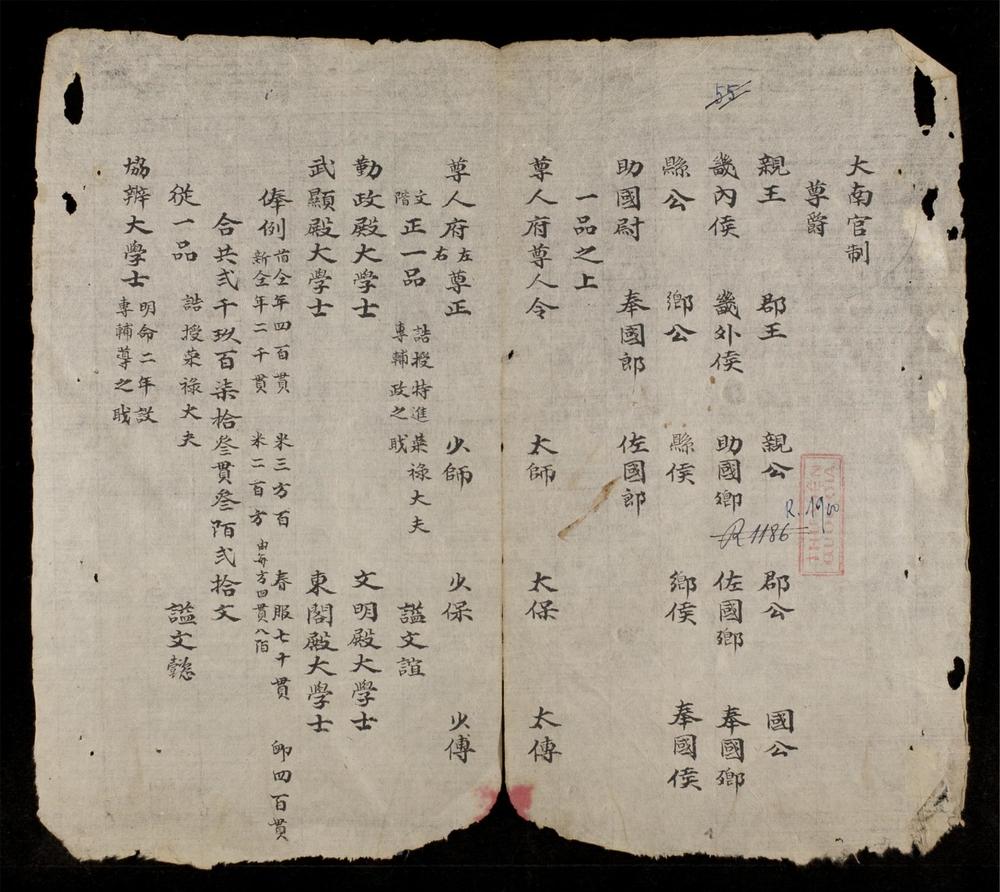 55
大南官制
尊爵
親王 郡王 親公 郡公 國公
畿内侯 畿外侯 助國卿 佐國卿 奉國卿
縣公 鄉公 縣侯 鄉侯 奉國侯
助國尉 奉國郎 佐國郎
一品之上
尊人府尊人令 太師 太保 太傅
尊人府左右尊正 少師 少保 少傅
文階正一品 誥授特進榮祿大夫 專輔政之職 謚文誼
勤政殿大學士 文明殿大學士
武顯殿大學士 東閣殿大學士
俸例 昔全年四百貫 米三方百 春服七十貫 卹四百貫
新全年二千貫 米二百方 由每方四貫八陌
合共弍千玖百柒拾叁貫叁陌弍拾文
從一品 誥授荣祿大夫 謚文懿
協辦大學士 明命二年設 專輔導之职
R. 1900
R 1186
THƯ VIỆN
QUỐC GIA